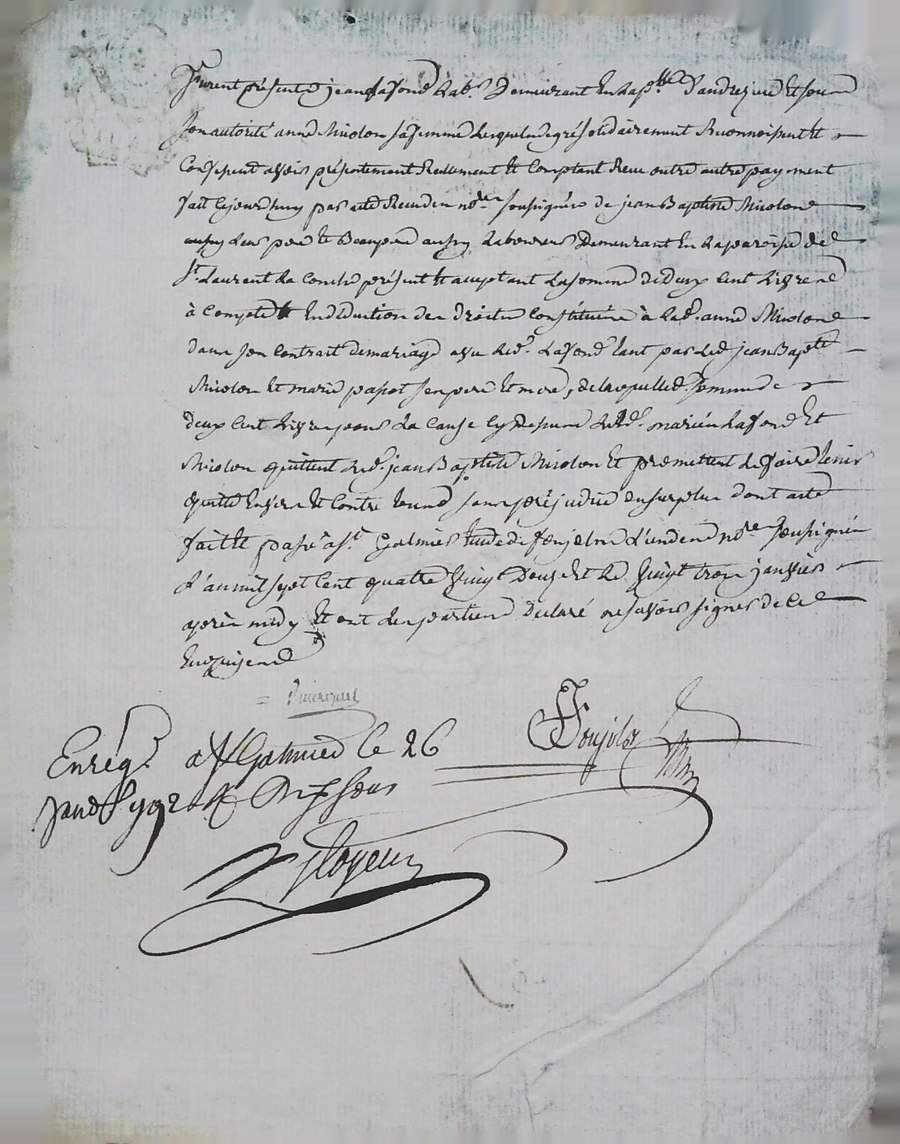 Furent présents jean Lafond Lab.r Demeurant En la p.sse d'andrezieu Et sous
son autorité anne Micolon sa femme Lesquels de gré solidairement Reconnoissent Et
Confessent avoir présentement Reellement Et Comptant Receu outre autre payement
fait Cejourdhuy par acte Receu des n.res soussignés de jean Baptiste Micolon
leur père Et Beaupere aussy Laboureur Demeurant En la paroisse de
S.t Laurent La Conche présent Et aceptant La somme de Deux Cent Livres
à Compte Et En déduction des Droits Constitués à Lad. anne Micolon
dans son Contrat de mariage avec Led. Lafond tant par Led. jean Bapte
Micolon Et marie pasot ses père Et mère, de laquelle d. somme de
deux Cent Livres pour La Cause Cy Dessus Lesd. mariés Lafond Et
Micolon quittent Led. jean Baptiste Micolon Et promettent Le faire tenir
quitte Envers Et Contre tous sans préjudice du surplus dont acte
fait Et passé a S.t Galmier Etude de fonjols L'un des n.res soussignés
L'an mil sept Cent quatre Vingt Douze Et Le Vingt trois janvier
après midy Et ont les parties Déclaré ne savoir signer de Ce
Enquises
Enrég.é a St Galmier le 26
janv. 1792 R. Dix sous
Fonjols